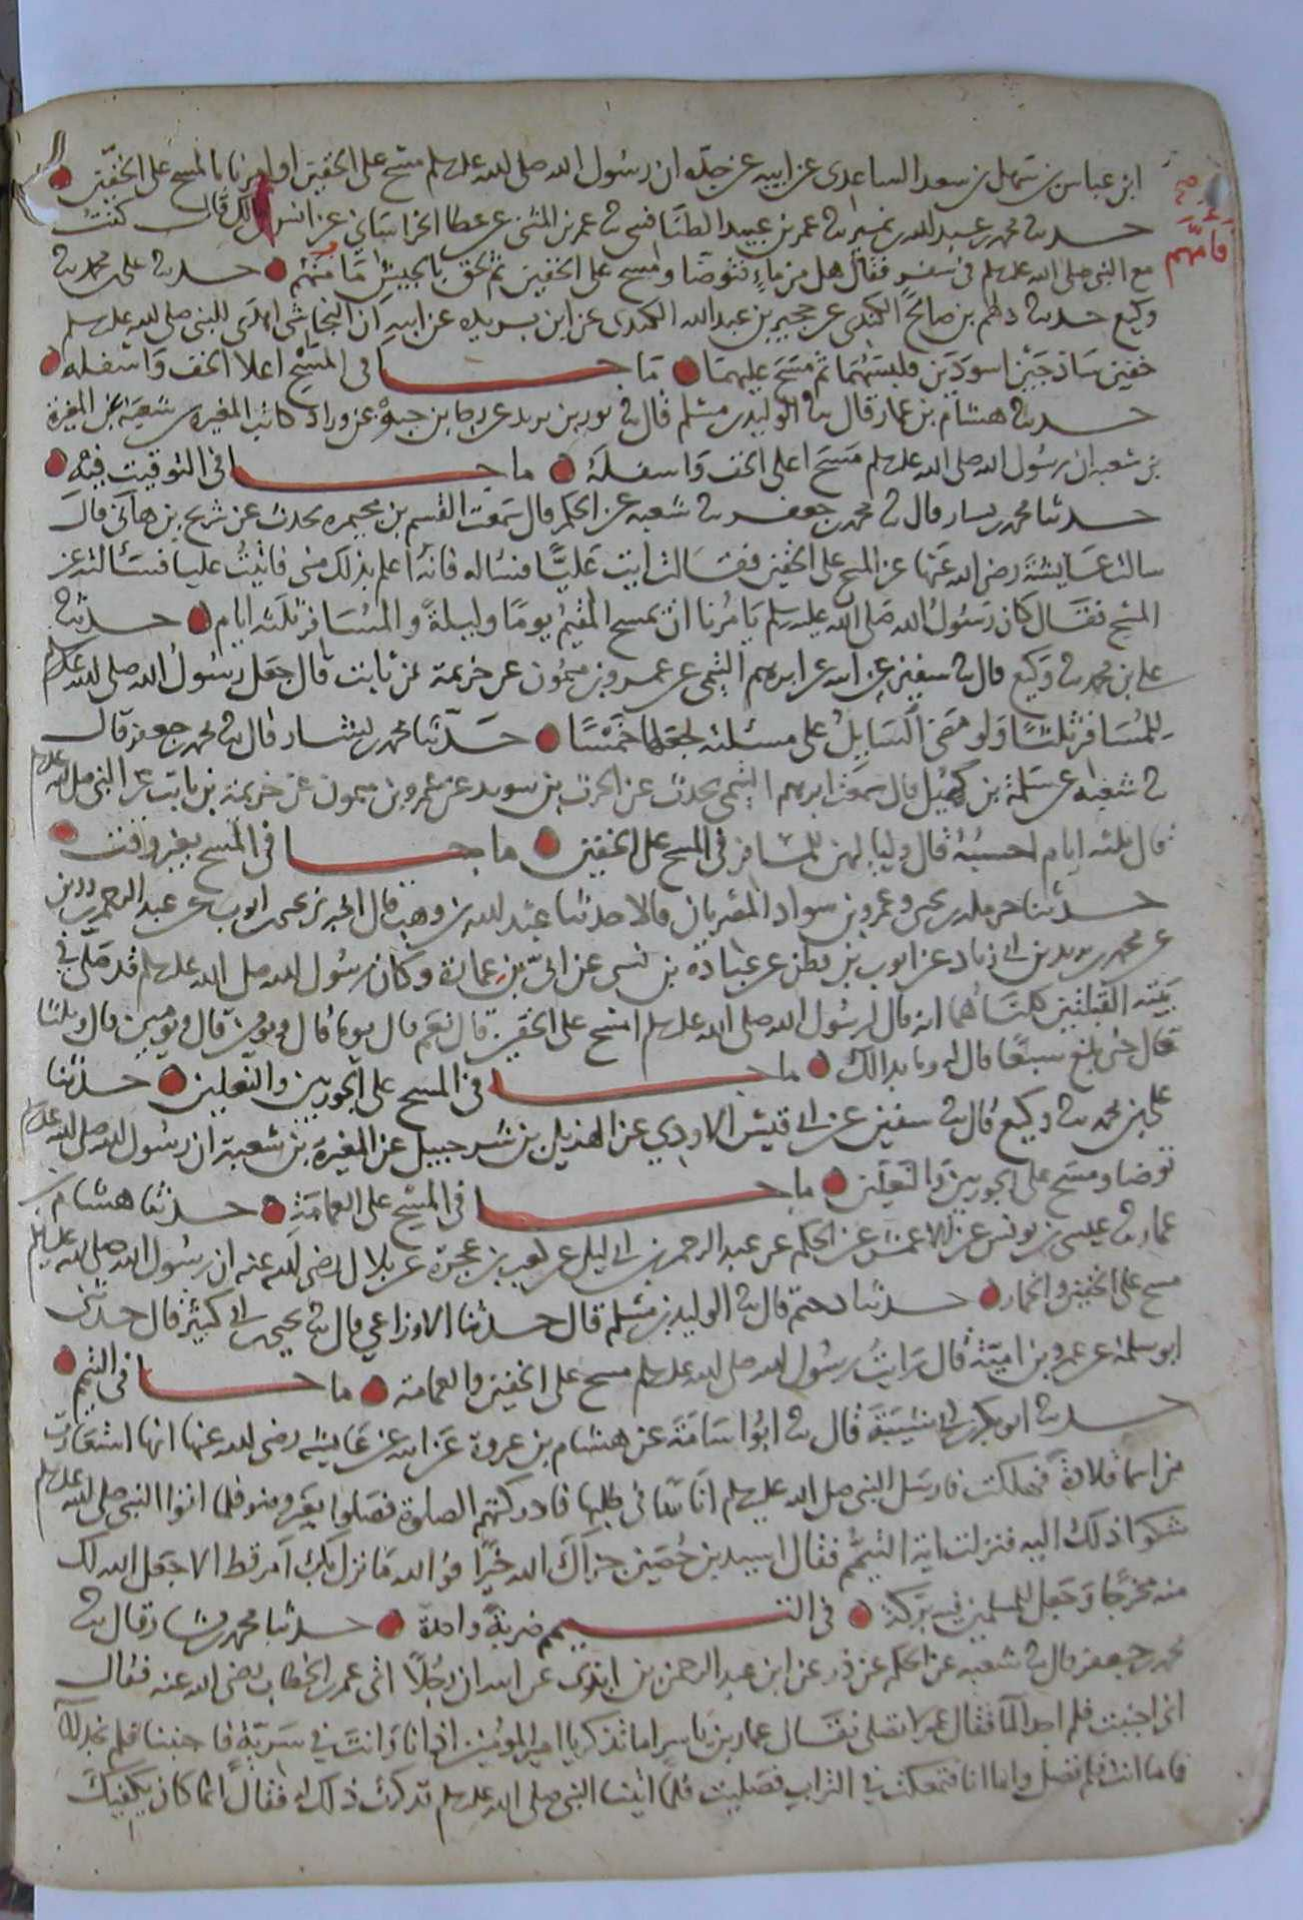 ابن عباس بن سهل بن سعد الساعدى عن ابيه عن جده ان رسول الله صلى الله عليه وسلم مسح على الخفين او امرنا بالمسح على الخفين
حدثنا محمد بن عبد الله بن نمير ثنا عمر بن عبيد الطنافسى ثنا عمر بن المثنى عن عطا الخراسانى عن انس بن مالك قال كنت
مع النبى صلى الله عليه وسلم فى سفر فقال هل من ماء فتوضا ومسح على الخفين ثم لحق بالجيش فامهم حدثنا على بن محمد ثنا
فامهم
وكيع حدثنا دلهم بن صالح الكندى عن حجير بن عبد الله الكندى عن ابن بريده عن ابيه ان النجاشى اهدى للنبى صلى الله عليه وسلم
خفين ساذجين اسودين فلبسهما ثم مسح عليهما ما جا فى المسح اعلا الخف واسفله
حدثنا هشام بن عمار قال ثنا الوليد بن مسلم قال ثنا ثور بن يزيد عن رجا بن حيوة عن وراد كاتب المغيرة بن شعبة عن المغيرة
بن شعبه ان رسول الله صلى الله عليه وسلم مسح اعلى الخف واسفله ما جا فى التوقيت فيه
حدثنا محمد بن بشار قال ثنا محمد بن جعفر ثنا شعبه عن الحكم قال سمعت القسم بن مخيمره يحدث عن شريح بن هانى قال
سالت عايشة رضى الله عنها عن المسح على الخفين فقالت ايت عليا فسئاله فانه اعلم بذلك منى فاتيت عليا فسئالته عن
المسح فقال كان رسول الله صلى الله عليه وسلم يامرنا ان نمسح المقيم يوما وليلة والمسافر ثلثه ايام حدثنا
على بن محمد ثنا وكيع قال ثنا سفين عن ابيه عن ابرهيم التيمى عن عمرو بن ميمون عن خزيمة بن ثابت قال جعل رسول الله صلى الله عليه وسلم
للمسافر ثلثا ولو مضى السايل على مسئلته لجعلها خمسا حدثنا محمد بن بشار قال ثنا محمد بن جعفر قال
ثنا شعبه عن سلمة بن كهيل قال سمعت ابرهيم التيمى يحدث عن الحرث بن سويد عن عمرو بن ميمون عن خزيمة بن ثابت عن النبى صلى الله عليه وسلم
قال ثلثه ايام احسبه قال ولياليهن للمسافر فى المسح على الخفين ما جا فى المسح بغير وقت
حدثنا حرملة بن يحيى وعمرو بن سواد المصريان قالا حدثنا عبد الله بن وهب قال اخبرنى يحيى بن ايوب عن عبد الرحمن بن رزين
عن محمد بن يزيد بن ابى زياد عن ايوب بن قطن عن عبادة بن نسى عن ابى بن عمارة وكان رسول الله صلى الله عليه وسلم قد صلى فى
بيته القبلتين كلتاهما انه قال لرسول الله صلى الله عليه وسلم امسح على الخفين قال نعم قال يوما قال ويومين قال ويومين قال وثلثا
قال حتى بلغ سبعا قال له وما بدا لك ما جا فى المسح على الجوربين والنعلين حدثنا
على بن محمد ثنا وكيع قال ثنا سفين عن ابى قيس الاودى عن الهذيل بن شرحبيل عن المغيرة بن شعبة ان رسول الله صلى الله عليه وسلم
توضا ومسح على الجوربين والنعلين ما جا فى المسح على العمامة حدثنا هشام بن
عمار ثنا عيسى بن يونس عن الاعمش عن الحكم عن عبد الرحمن بن ابى ليلى عن كعب بن عجرة عن بلال رضى الله عنه ان رسول الله صلى الله عليه وسلم
مسح على الخفين والخمار حدثنا دحيم قال ثنا الوليد بن مسلم قال حدثنا الاوزاعي قال ثنا يحيى بن ابى كثير قال حدثنى
ابو سلمة عن عمرو بن امية قال رايت رسول الله صلى الله عليه وسلم مسح على الخفين والعمامة ما جا فى التيمم
حدثنا ابو بكر بن ابى شيبة قال ثنا ابو اسامة عن هشام بن عروة عن ابيه عن عايشه رضى الله عنها انها استعارت
من اسما قلادة فهلكت فارسل النبى صلى الله عليه وسلم اناسا فى طلبها فادركتهم الصلوة فصلوا بغير وضو فلما اتوا النبى صلى الله عليه وسلم
شكوا ذلك اليه فنزلت اية التيمم فقال اسيد بن حضين جزاك الله خيرا فو الله ما نزل بك امر قط الا جعل الله لك
منه مخرجا وجعل للمسلمين فيه بركة فى التيمم ضربة واحدة حدثنا محمد بن بشار قال ثنا
محمد بن جعفر قال ثنا شعبه عن الحكم عن ذر عن ابن عبد الرحمن بن ابزى عن ابيه ان رجلا اتى عمر بن الخطاب رضى الله عنه فقال
انى اجنبت فلم اجد الما فقال عمر لا تصلى فقال عمار بن ياسر اما تذكر يا امير المؤمنين اذ انا وانت فى سرية فاجنبنا فلم نجد الما
فاما انت فلم تصل واما انا فتمعكت فى التراب فصليت فلما اتيت النبى صلى الله عليه وسلم فذكرت ذلك له فقال انما كان يكفيك